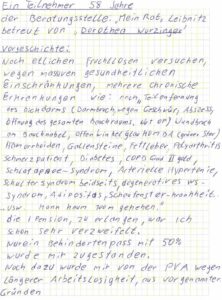 Ein Teilnehmer 58 Jahre
der Beratungsstelle: Mein Rat, Leibnitz
betreut von, Dorothea Wurzinger
Vorgeschichte:
Nach etlichen fruchtlosen versuchen,
wegen massiven gesundheitlichen
Einschränkungen, mehrere Chronische
Erkrankungen wie: Teilentfernung
des Dickdarms (Darmdurchbruch wegen Geschwür, Abszess,
öffnung des gesamten Bauchraums, Wundbrand
am Bauchnabel, offenwinkelglaukom (grüner Star)
Hämorrhoiden, Gallensteine, Fettleber, Polyarthritis
Schmerzpatient, Diabetes, COPD Gold II,
Schlafapnoe-Syndrom, Arterielle Hypertonie,
Schulter Syndrom beidseits, degeneratives WS-
Syndrom, Adipositas, Schaufensterkrankheit
usw. kann kaum noch gehen."
die Pension, zu erlangen, war ich
schon sehr verzweifelt.
Nur ein Behindertenpass mit 50%
wurde mir zugestanden.
Noch dazu wurde mir von der PVA wegen
längerer Arbeitslosigkeit, aus vorgenannten
Gründen